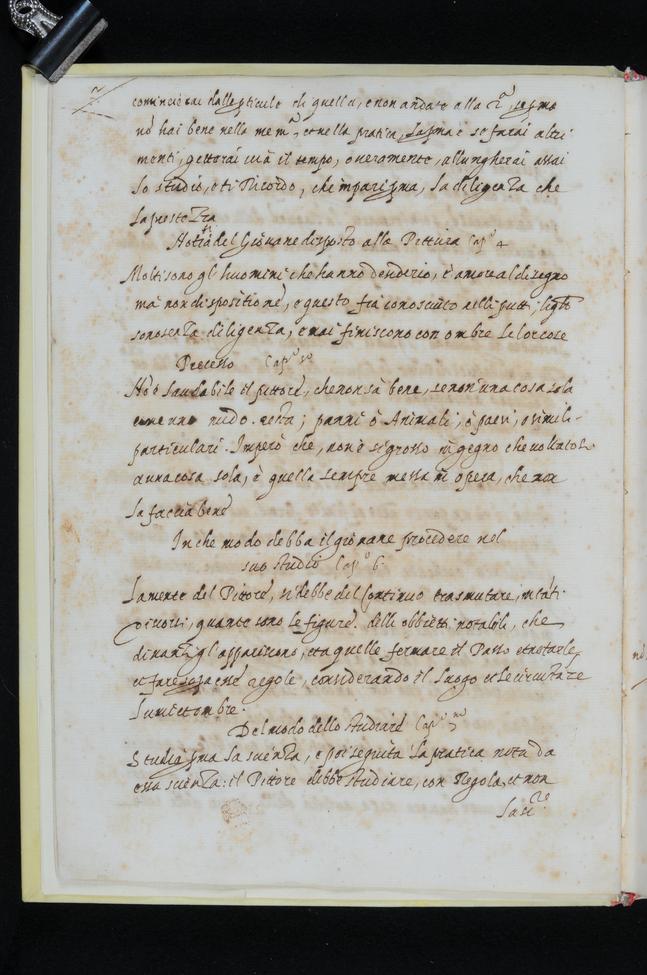 2
comincierai dalle particule di quella, e non andare alla 2ª, se pma
nō hai bene nella memª, et nella pratica, la pma e se farai altri
menti, getterai via il tempo, o veramente, allungherai assai
lo studio, e ti Ricordo, che impari pma, la diligenza che
la prestezza
Notia del Giovane disposto alla Pittura Capº 4
Molti sono gl'huomini che hanno desiderio, è amore al disegno
mà non dispositione, e questo fia conosciuto nelli putti, li qli
sono senza diligenza, e mai finiscono con ombre le lor cose
Precetto Capº 5º
Nō è laudabile il pittore, che non sà bene, se non una cosa sola
come uno nudo. testa; panni ò Animali; ò paesi, o simili
particulari. Imperò che, non è si grosso ingegno che voltatosi
a una cosa sola, è quella sempre messa in opera, che non
la faccia bene
In che modo debba il giovane procedere nel
suo studio Capº 6.
La mente del Pittore, si debbe del Continuo trasmutare, in tāti
discorsi, quante sono le figure. delli obbietti notabili, che
dinanzi gl'appariscono, et a quelle fermare il Passo et notarle,
et fare sopa esse regole, considerando il luogo et le circustāze
lumi et ombre.
Del modo dello studiare Capº 7mo
Studia pma la scienza, e poi seguita la pratica nata da
essa scienza: il Pittore debbe studiare, con Regola, et non